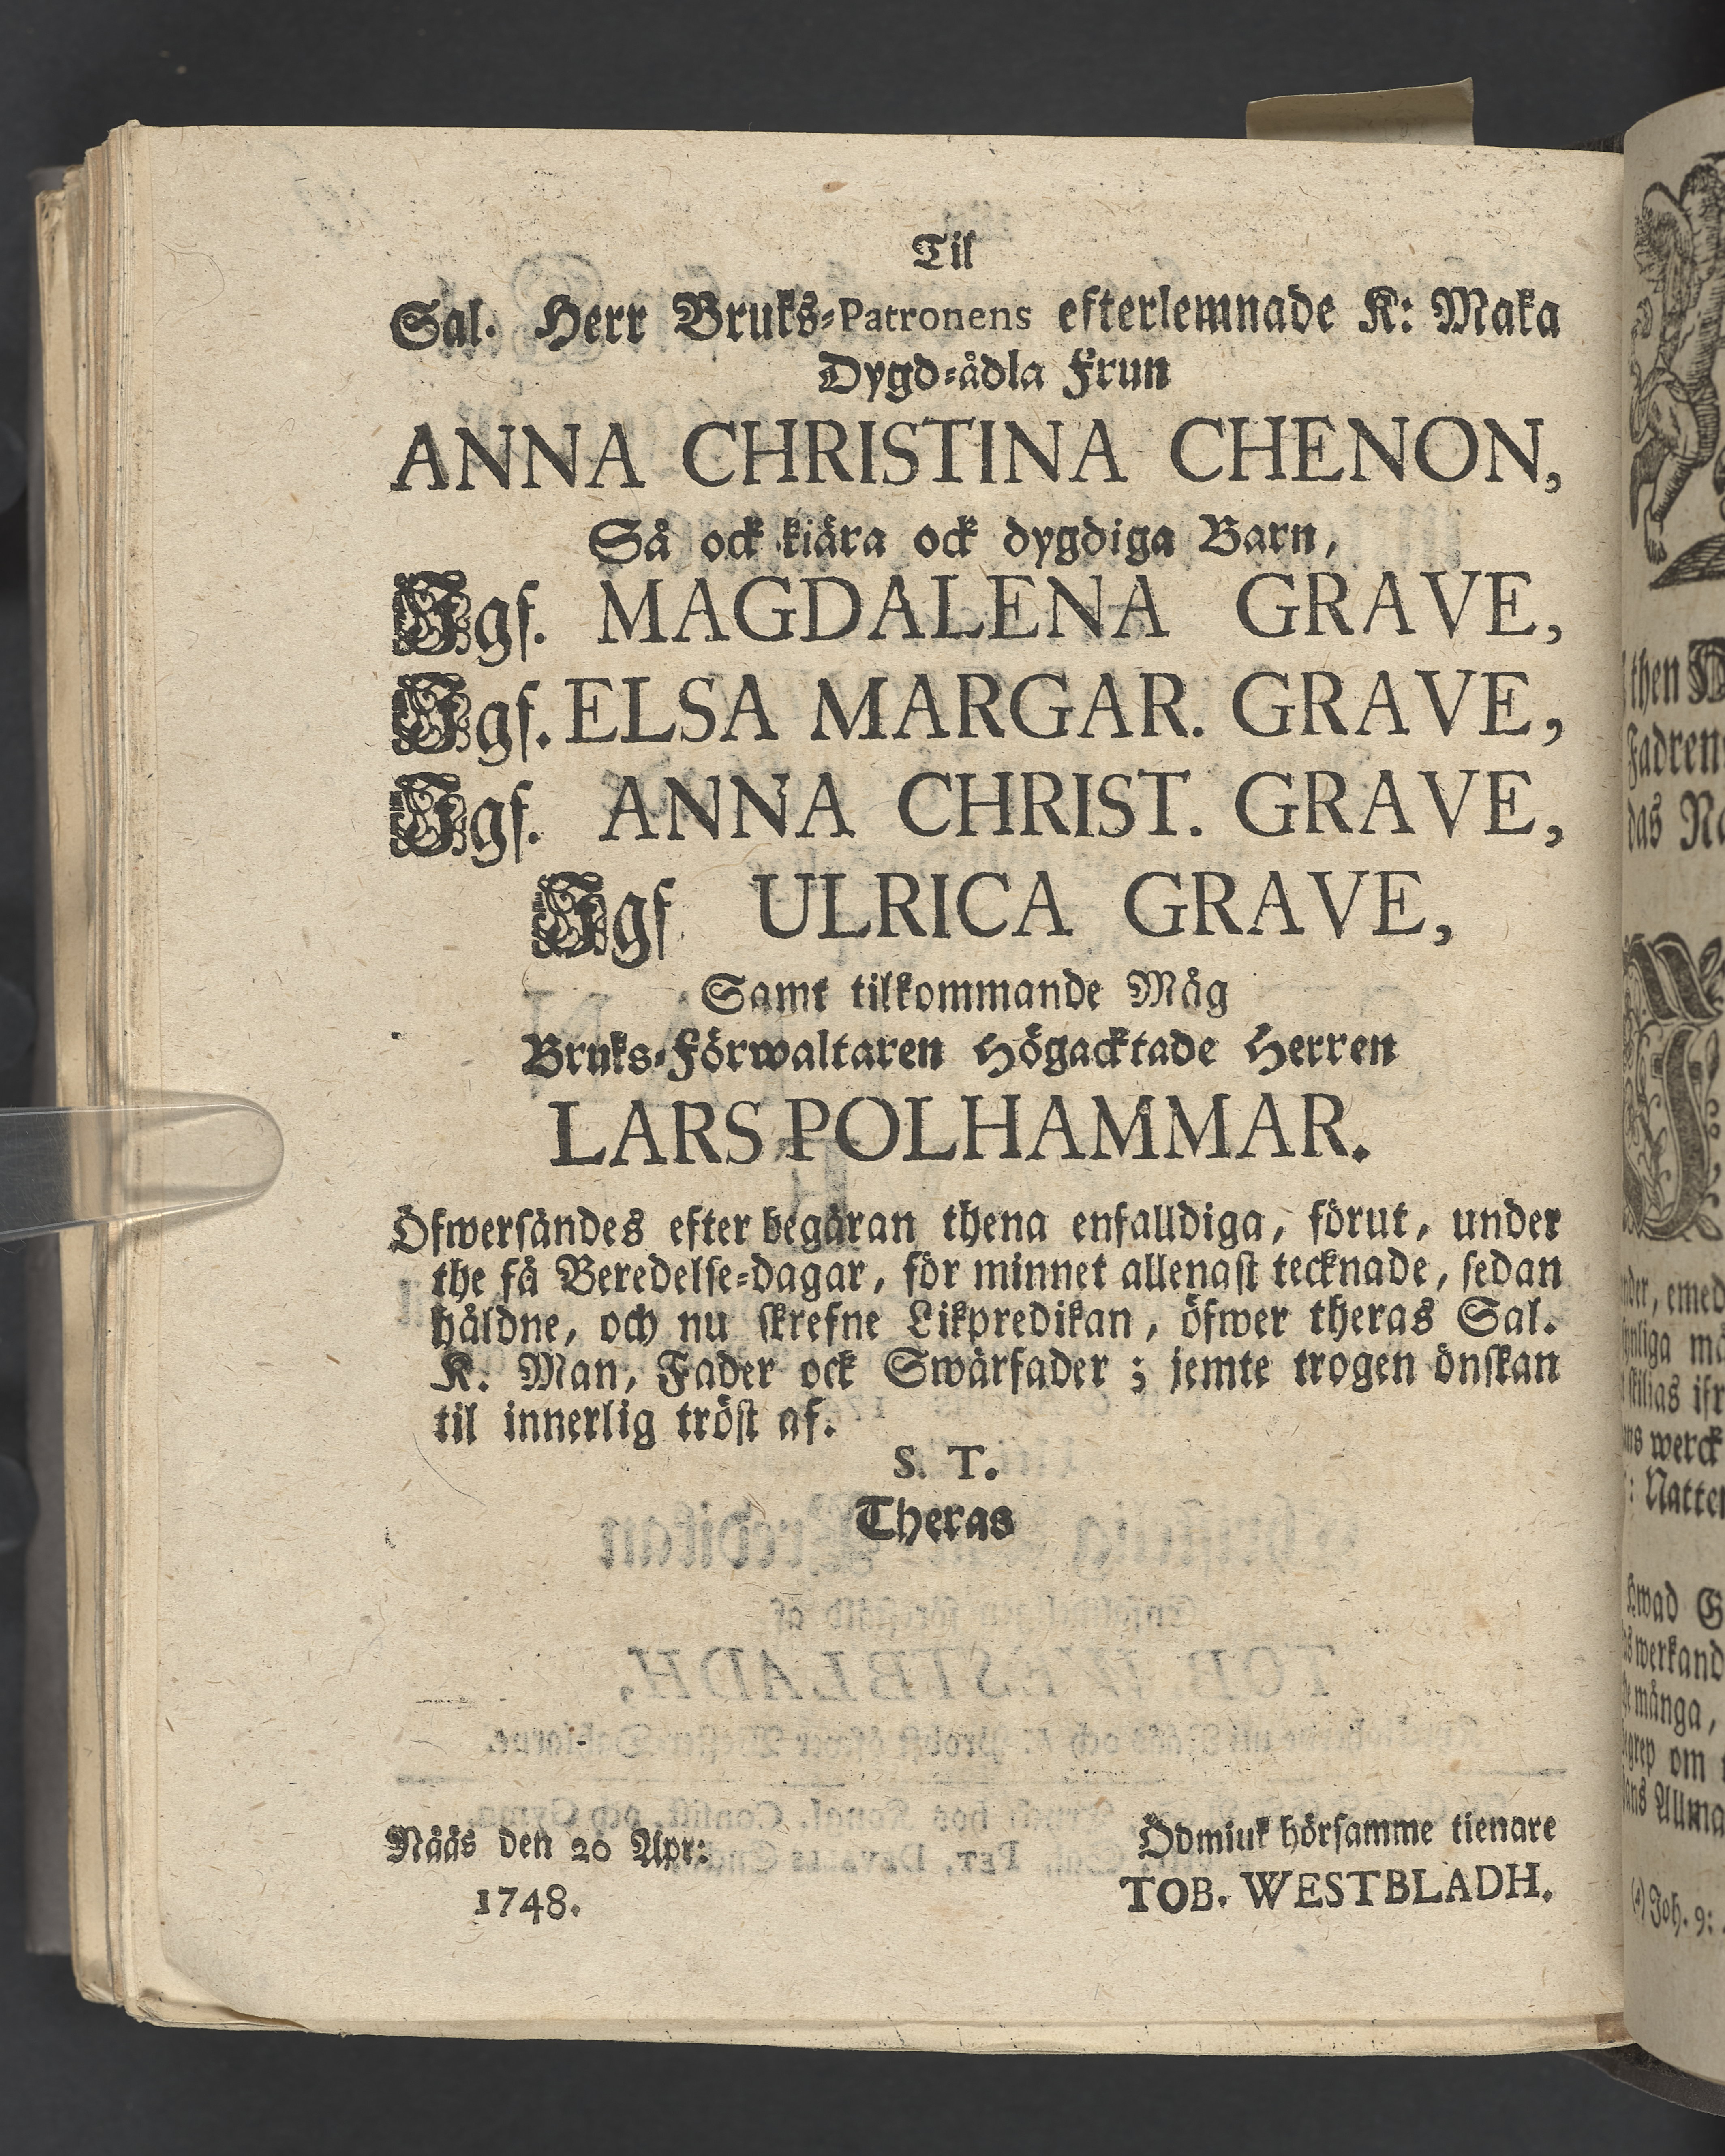 Til
Sal. Herr Bruks-Patronens efterlemnade K: Maka
Dygd-ädla Frun
ANNA CHRISTINA CHENON,
Så ock kiära ock dygdiga Barn,
Jgf. MAGDALENA GRAVE,
Jgf. ELSA MARGAR. GRAVE,
Jgf. ANNA CHRIST. GRAVE,
Jgf ULRICA GRAVE,
Samt tilkommande Måg
Bruks-Förwaltaren Högacktade Herren
LARS POLHAMMAR.
Öfwersändes efter begäran thena enfalldiga, förut, under
the få Beredelse-dagar, för minnet allenast tecknade, sedan
håldne, och nu skrefne Likpredikan, öfwer theras Sal.
K. Man, Fader ock Swärfader; jemte trogen önskan
til innerlig tröst af.
S. T.
Theras
Nääs den 20 Apr:
1748.
Ödmiuk hörsamme tienare
TOB. WESTBLADH.
then
Fadren
das
emed
werck
många,
om
Joh. 9: